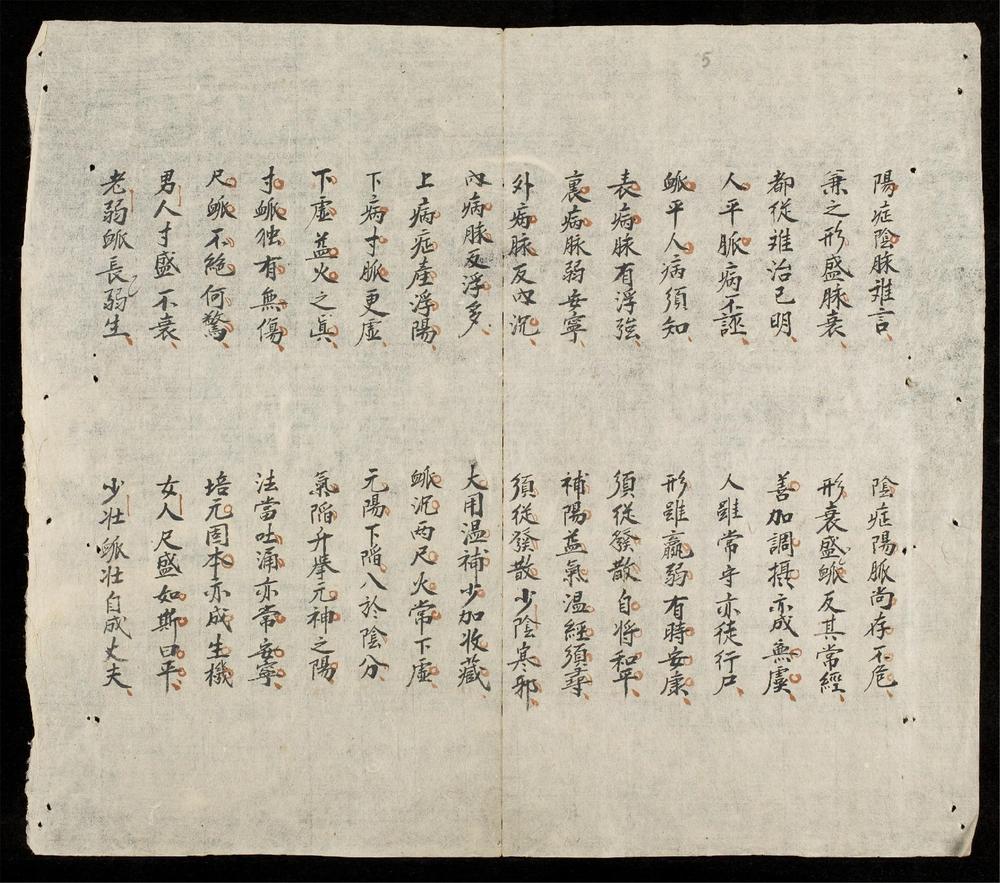 5
陽症陰脉难言
陰症陽脈尚存不危
兼之形盛脉衰
形衰盛䘑反其常經
都從难治已明
善加調摂亦成無虞
人平脈病不誣
人雖常守亦徒行尸
䘑平人病須知
形雖羸弱有時安康
表病脉有浮強
須從發散自将和平
裏病脉弱安寧
補陽益氣温經須尋
外病脉反內沉
須從發散少陰寒邪
內病脉反浮多
大用温補少加收藏
上病症產浮陽
䘑沉两尺火常下虛
下病寸脈更虛
元陽下陷入於陰分
下虛益火之眞
氣陷升舉元神之陽
寸䘑独有無傷
法當吐涌亦常安寧
尺䘑不絕何驚
培元固本亦成生機
男人寸盛不衰
女人尺盛如斯曰平
老弱䘑長弱生
少壮䘑壮自成丈夫